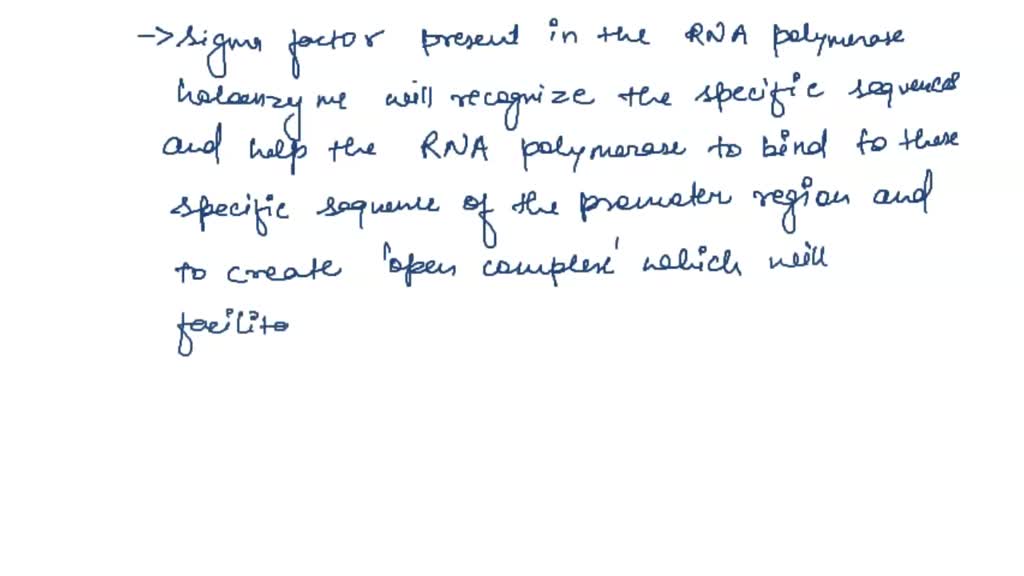 -> sigma factor present in the RNA polymerase
holoenzyme will recognize the specific sequences
and help the RNA polymerase to bind to these
specific sequence of the promoter region and
to create 'open complex' which will
facilita